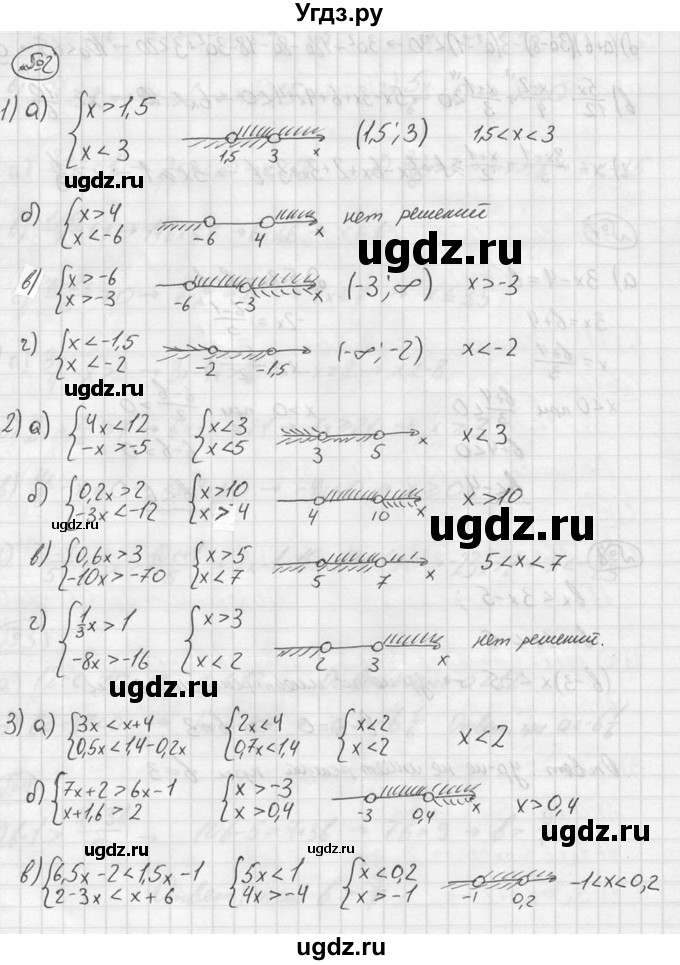 Угдз.ру
№2
1) а) { x > 1,5
x < 3
1,5 3 x
(1,5 ; 3) 1,5 < x < 3
ugdz.ru
б) { x > 4
x < -6
-6 4 x
нет решений
ugdz.ru
в) { x > -6
x > -3
-6 -3 x
(-3 ; ∞) x > -3
г) { x < -1,5
x < -2
-2 -1,5
(-∞; -2) x < -2
ugdz.ru
2) а) { 4x < 12
-x > -5
{ x < 3
x < 5
3 5 x
x < 3
б) { 0,2x > 2
-3x < -12
{ x > 10
x > 4
4 10 x
x > 10
ugdz.ru
ugdz.ru
в) { 0,6x > 3
-10x > -70
{ x > 5
x < 7
5 7 x
5 < x < 7
г) { 1/3 x > 1
-8x > -16
{ x > 3
x < 2
2 3 x
нет решений.
ugdz.ru
3) а) { 3x < x + 4
0,5x < 1,4 - 0,2x
{ 2x < 4
0,7x < 1,4
{ x < 2
x < 2
x < 2
б) { 7x + 2 > 6x - 1
x + 1,6 > 2
{ x > -3
x > 0,4
-3 0,4 x
x > 0,4
ugdz.ru
ugdz.ru
в) { 6,5x - 2 < 1,5x - 1
2 - 3x < x + 6
{ 5x < 1
4x > -4
{ x < 0,2
x > -1
-1 0,2
-1 < x < 0,2
ugdz.ru